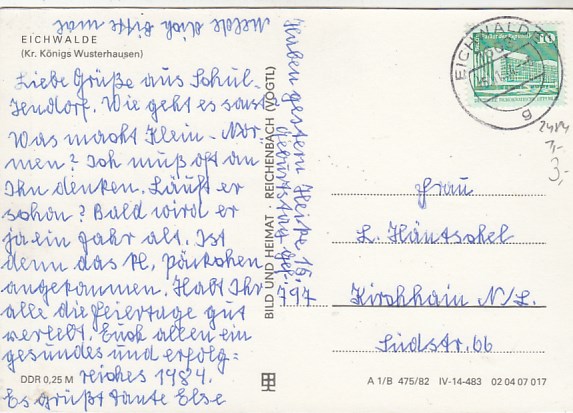 Melde dich bitte mal
EICHWALDE
(Kr. Königs Wusterhausen)
Liebe Grüße aus Schul-
zendorf. Wie geht es sonst
Was macht Klein-Nor-
men? Ich muß oft an
Ihn denken. Läuft er
schon? Bald wird er
ja ein Jahr alt. Ist
denn das kl. Päckchen
angekommen. Habt Ihr
alle die Feiertage gut
verlebt. Euch allen ein
gesundes und erfolg=
reiches 1984.
Es grüßt Tante Else
Haben gestern Heike 16.
Geburtstag gef.
BILD UND HEIMAT REICHENBACH (VOGTL)
EICHWALDE
10
g
2414
3,-
Frau
L. Häntschel
797 Kirchhain N/L.
Südstr. 66
DDR 0,25 M
A 1/B 475/82 IV-14-483 02 04 07 017